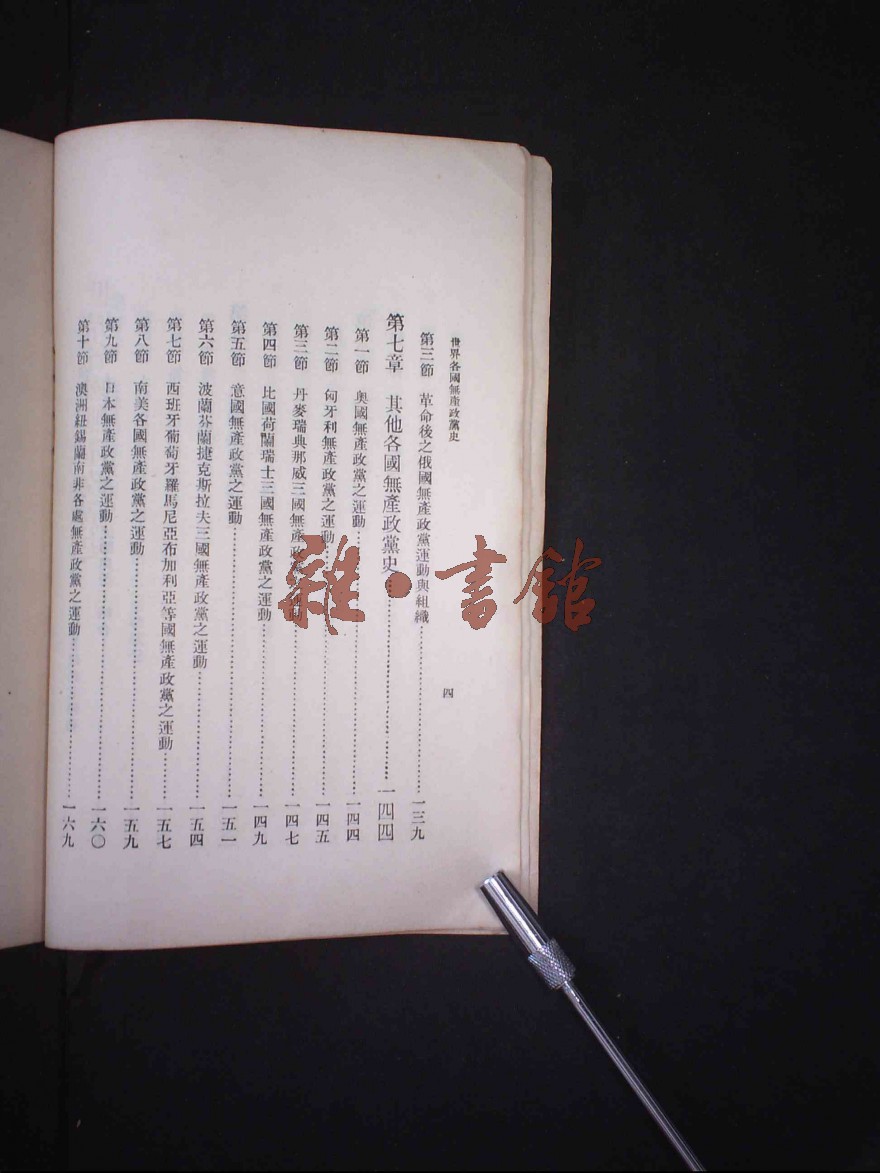 世界各國無產政黨史
四
第三節 革命後之俄國無產政黨運動與組織……一三九
第七章 其他各國無產政黨史……一四四
第一節 奧國無產政黨之運動……一四四
第二節 匈牙利無產政黨之運動……一四五
第三節 丹麥瑞典那威三國無產政黨之運動……一四七
第四節 比國荷蘭瑞士三國無產政黨之運動……一四九
第五節 意國無產政黨之運動……一五一
第六節 波蘭芬蘭捷克斯拉夫三國無產政黨之運動……一五四
第七節 西班牙葡萄牙羅馬尼亞布加利亞等國無產政黨之運動……一五七
第八節 南美各國無產政黨之運動……一五九
第九節 日本無產政黨之運動……一六〇
第十節 澳洲紐錫蘭南非各處無產政黨之運動……一六九
雜·書館